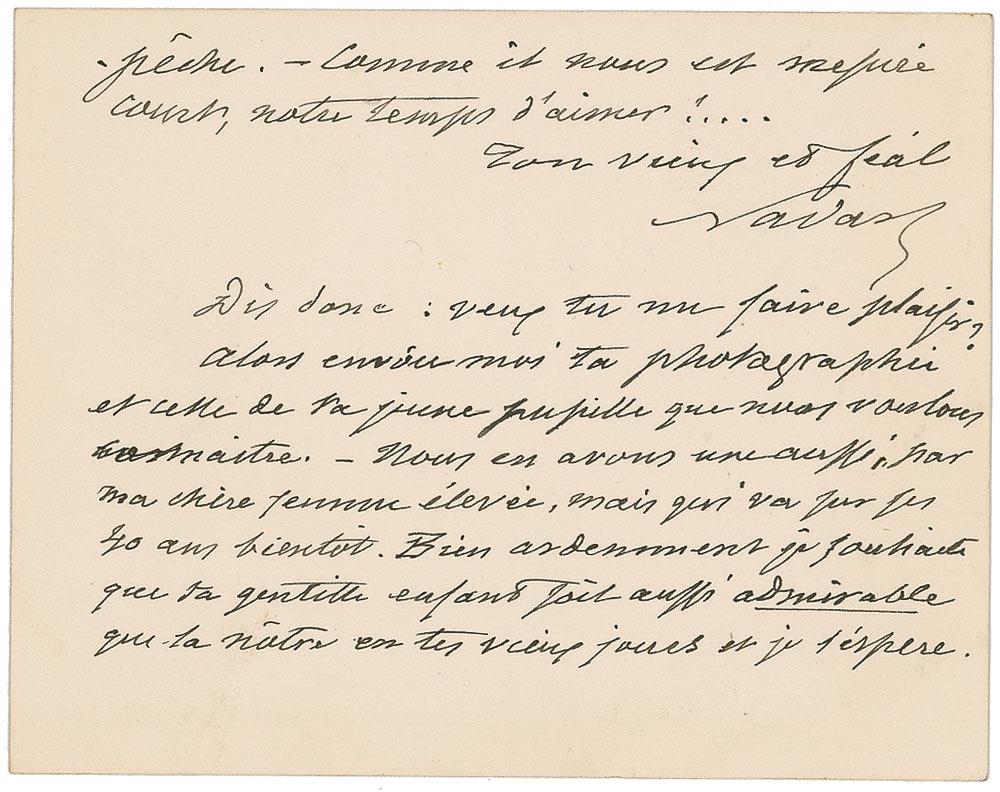 -pêche. – Comme il nous est mesuré
court, notre temps d'aimer !....
Ton vieux et féal
Nadar
Dis donc : veux tu me faire plaisir ?
Alors envoie moi ta photographie
et celle de ta jeune pupille que nous voulons
connaitre. – Nous en avons une aussi, par
ma chère femme élevée, mais qui va sur ses
40 ans bientôt. Bien ardemment je souhaite
que ta gentille enfant soit aussi admirable
que la nôtre en tes vieux jours et je l'éspère.